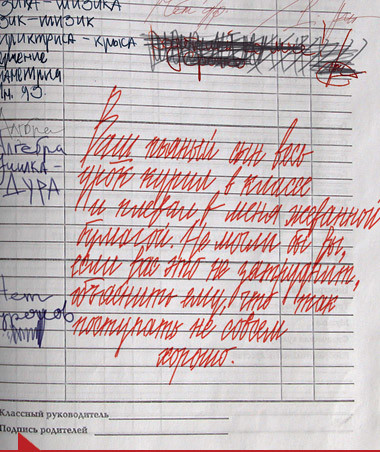 зика - шизика
зик - шизик
риктриса - крыса
рчение
ланетрия
алгебра
Алгебра
ДУРА
В
Ваш пьяный сын весь
урок курил в классе
и плевал в меня жеванной
бумагой. Не могли бы вы,
если вас это не затруднит,
объяснить ему, что так
поступать не совсем
хорошо.
Нет
уроков
Классный руководитель
Подпись родителей